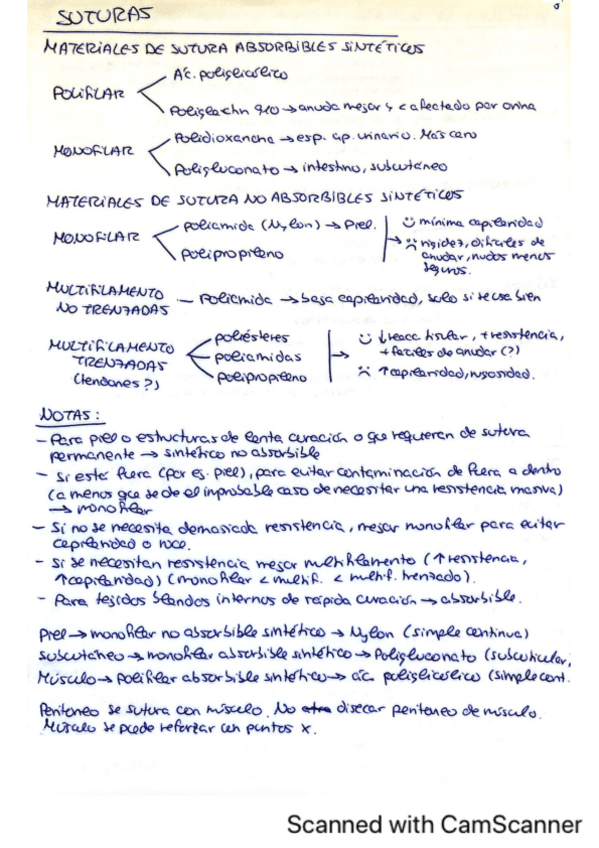 SUTURAS
MATERIALES DE SUTURA ABSORBIBLES SINTÉTICOS
POLIFILAR
Ác. poliglicólico
Poliglactin 910 → anuda mejor y < afectado por orina
MONOFILAR
Polidioxanona → esp. ap. urinario. Más caro
Poligluconato → intestino, subcutáneo
MATERIALES DE SUTURA NO ABSORBIBLES SINTÉTICOS
MONOFILAR
poliamida (Nylon) → Piel.
polipropileno
→ :) mínima capilaridad
:( rigidez, difíciles de
anudar, nudos menos
seguros.
MULTIFILAMENTO
NO TRENZADAS
- Poliamida → baja capilaridad, solo si recubren
MULTIFILAMENTO
TRENZADAS
(tendones?)
poliésteres
poliamidas
polipropileno
→ :) ↓ reacc tisular, + resistencia,
+ fáciles de anudar (?)
:( ↑ capilaridad, rugosidad.
NOTAS:
- Para piel o estructuras de lenta curación o que requieran de sutura
permanente → sintético no absorbible
- Si está fuera (por ej. piel), para evitar contaminación de fuera a dentro
(a menos que se dé el improbable caso de necesitar una resistencia masiva)
→ monofilar
- Si no se necesita demasiada resistencia, mejor monofilar para evitar
capilaridad o roce.
- Si se necesitan resistencia mejor multifilamento (↑ resistencia,
↑ capilaridad) (monofilar < multif. < multif. trenzado).
- Para tejidos blandos internos de rápida curación → absorbible.
Piel → monofilar no absorbible sintético → Nylon (simple continua)
Subcutáneo → monofilar absorbible sintético → Poligluconato (subcuticular,
Músculo → polifilar absorbible sintético → ác. poliglicólico (simple cont.
Peritoneo se sutura con músculo. No disecar peritoneo de músculo.
Músculo se puede reforzar con puntos X.
Scanned with CamScanner